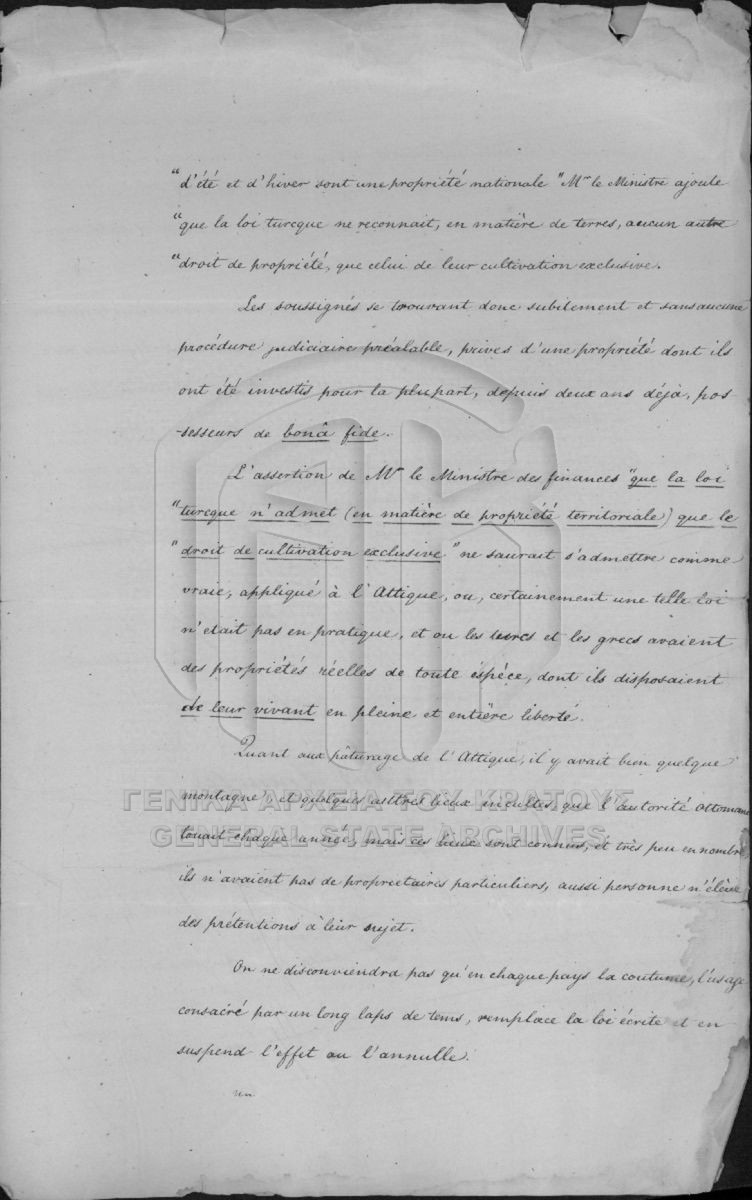 “d'été et d'hiver sont une propriété nationale” Mr le Ministre ajoute
“que la loi turcque ne reconnait, en matière de terres, aucun autre
“droit de propriété, que celui de leur cultivation exclusive.
Les soussignés se trouvant donc subitement et sans aucune
procédure judiciaire préalable, privés d'une propriété dont ils
ont été investis pour la plupart, depuis deux ans déjà, pos-
-sesseurs de bonâ fide.
L'assertion de Mr le Ministre des finances “que la loi
“turcque n'admet (en matière de propriété territoriale) que le
“droit de cultivation exclusive” ne saurait s'admettre comme
vraie, appliqué à l'Attique, ou, certainement une telle loi
n'était pas en pratique, et ou les turcs et les grecs avaient
des propriétés réelles de toute espèce, dont ils disposaient
de leur vivant en pleine et entière liberté.
Quant aux pâturage de l'Attique, il y avait bien quelque
montagne, et quelques autres lieux incultes, que l'autorité Ottomane
ΓΕΝΙΚΑ ΑΡΧΕΙΑ ΤΟΥ ΚΡΑΤΟΥΣ
louait chaque année, mais ces lieux sont connus, et très peu en nombre
GENERAL STATE ARCHIVES
ils n'avaient pas de proprietaires particuliers, aussi personne n'élève
des prétentions à leur sujet.
On ne disconviendra pas qu'en chaque pays la coutume, l'usage
consacré par un long laps de tems, remplace la loi écrite et en
suspend l'effet ou l'annulle.
un